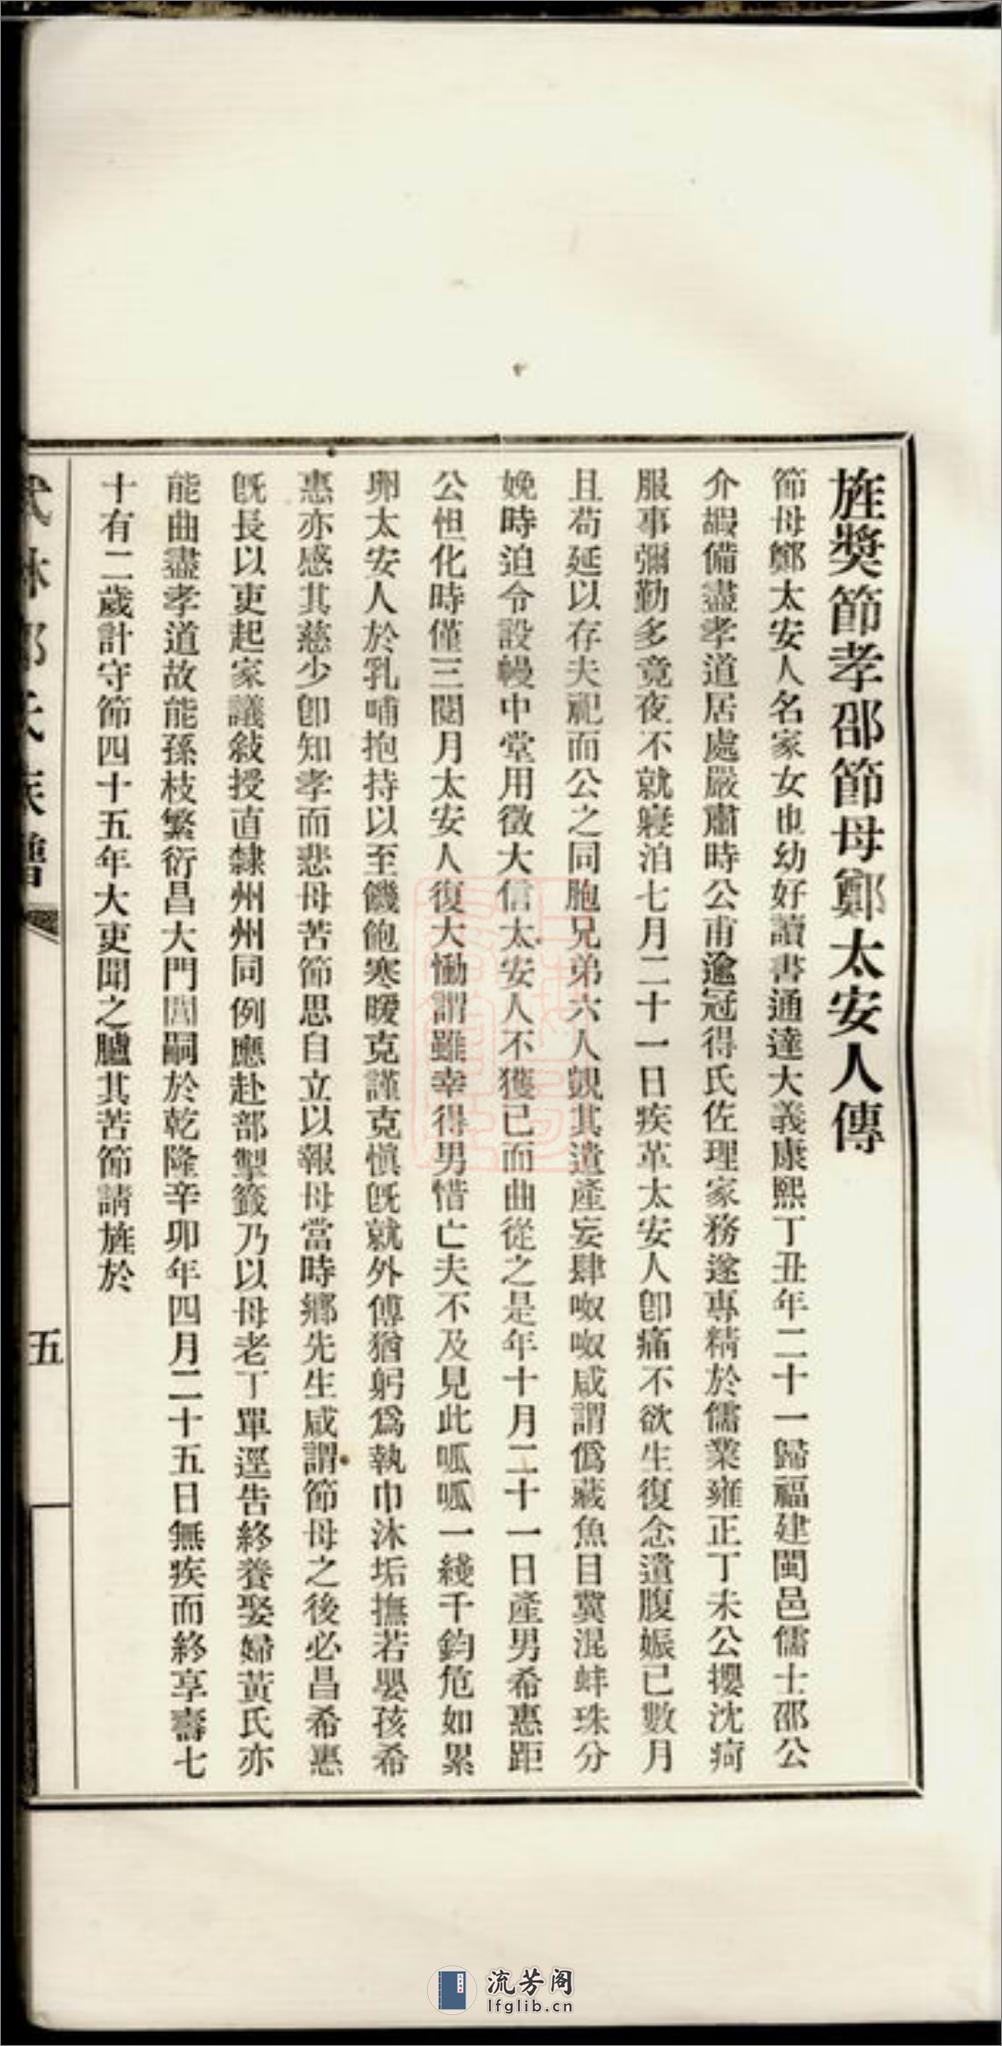 旌獎節孝邵節母鄭太安人傳
節母鄭太安人名家女也幼好讀書通達大義康熙丁丑年二十一歸福建閩邑儒士邵公
介嘏備盡孝道居處嚴肅時公甫逾冠得氏佐理家務遂專精於儒業雍正丁未公攖沈疴
服事彌勤多竟夜不就寢洎七月二十一日疾革太安人卽痛不欲生復念遺腹娠已數月
且苟延以存夫祀而公之同胞兄弟六人覬其遺產妄肆呶呶咸謂僞藏魚目冀混蚌珠分
娩時迫令設幔中堂用徵大信太安人不獲已而曲從之是年十月二十一日產男希惠距
公怛化時僅三閱月太安人復大慟謂雖幸得男惜亡夫不及見此呱呱一綫千鈞危如累
卵太安人於乳哺抱持以至饑飽寒暖克謹克愼旣就外傅猶躬爲執巾沐垢撫若嬰孩希
惠亦感其慈少卽知孝而悲母苦節思自立以報母當時鄉先生咸謂節母之後必昌希惠
旣長以吏起家議敍授直隸州州同例應赴部掣籤乃以母老丁單逕告終養娶婦黃氏亦
能曲盡孝道故能孫枝繁衍昌大門閭嗣於乾隆辛卯年四月二十五日無疾而終享壽七
十有二歲計守節四十五年大吏聞之臚其苦節請旌於
武林邵氏族譜
五
流芳阁
lfglib.cn